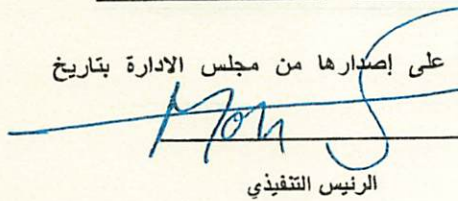 على إصدارها من مجلس الادارة بتاريخ
الرئيس التنفيذي